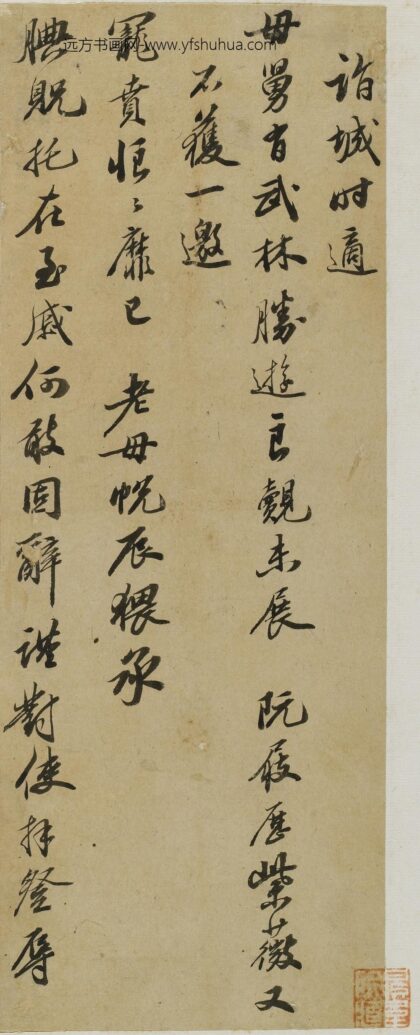 诣城时適
母舅有武林勝遊良覿未展 阮屐歷紫薇又
不獲一邀
寵賁悵〻靡已 老母帨辰猥承
腆貺托在至戚何敢固辭謹對使拜登辱
远方书画网-www.yfshuhua.com